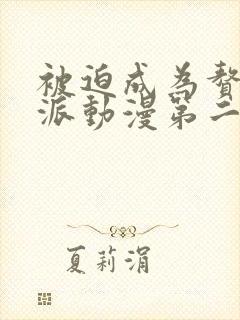 被迫成為贅
派動漫第二
夏莉涓